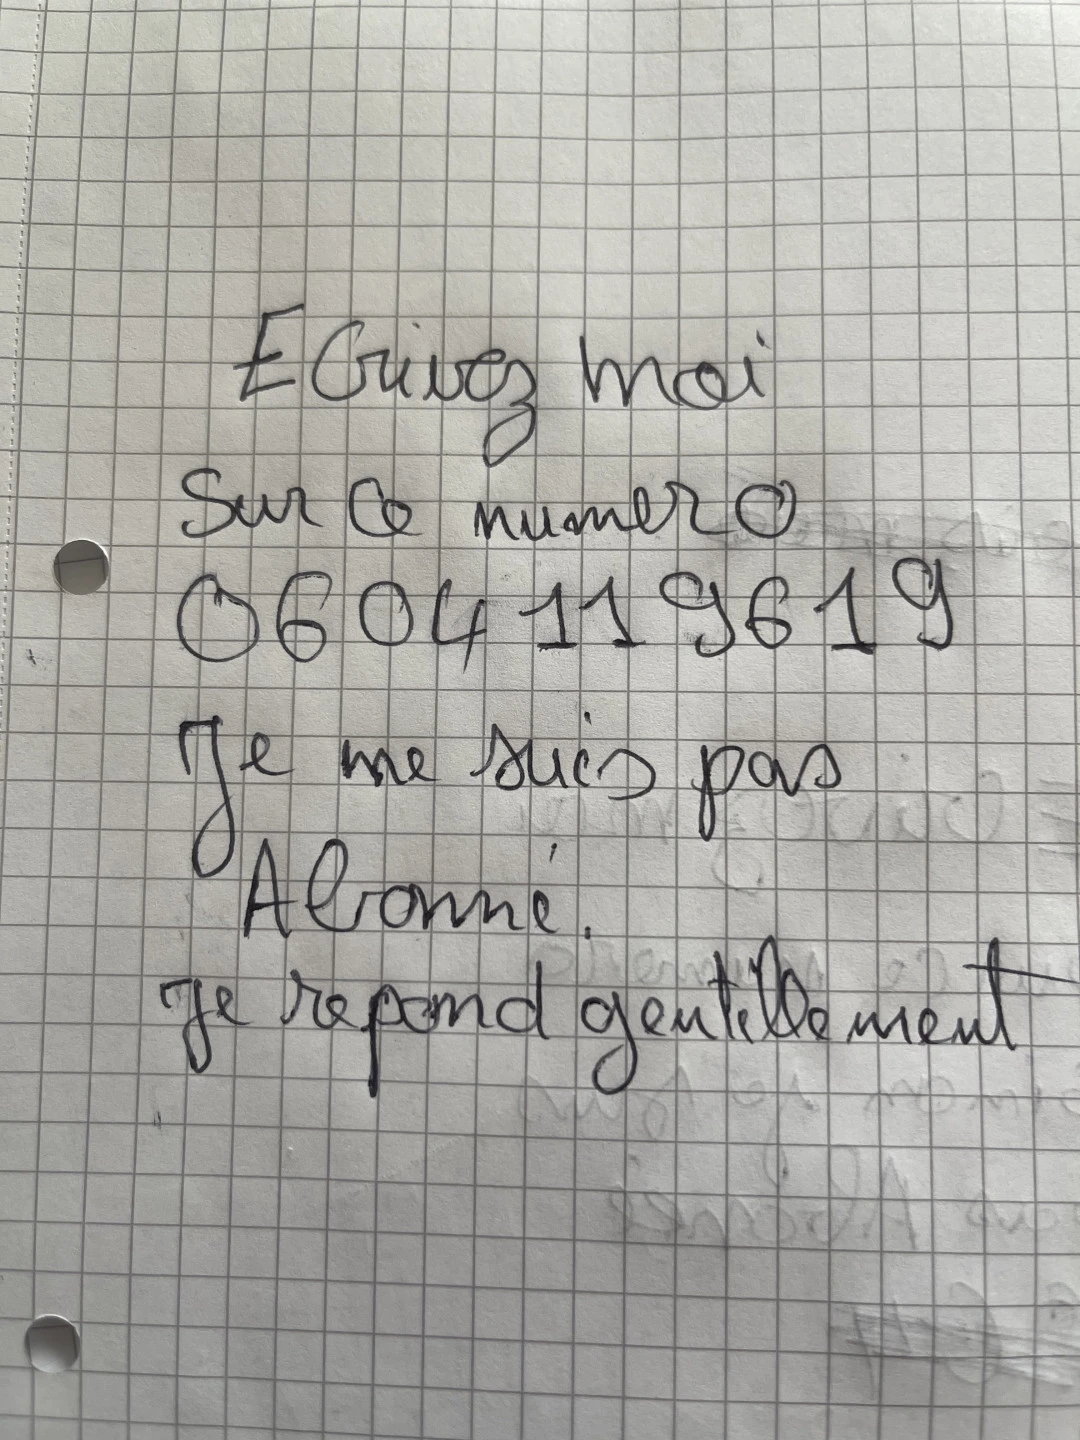 Ecrivez moi
Sur ce numero
0604119619
Je me suis pas
Abonné.
Je repond gentillement